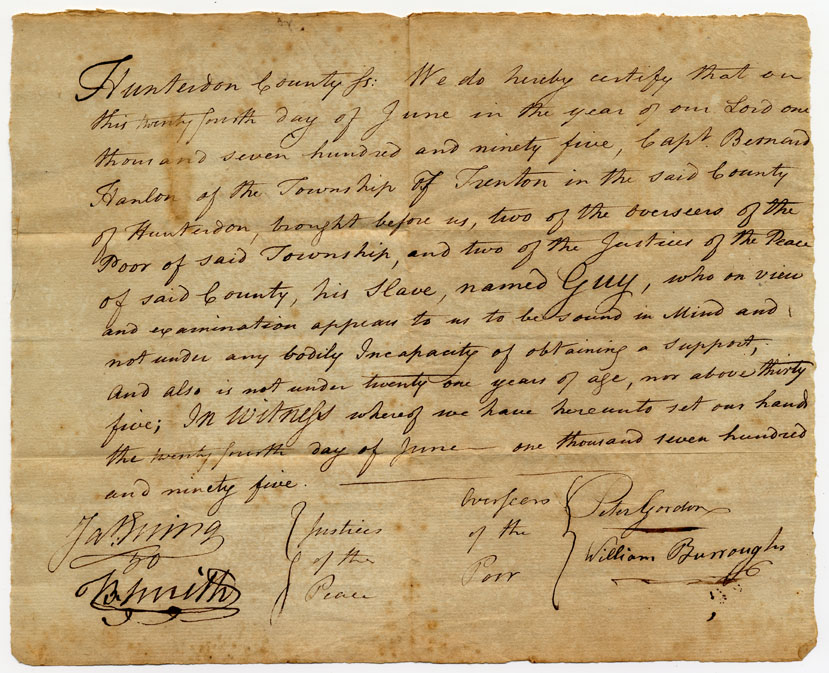 Hunterdon County ss: We do hereby certify that on
this twenty fourth day of June in the year of our Lord one
thousand seven hundred and ninety five, Capt. Bernard
Hanlon of the Township of Trenton in the said County
of Hunterdon, brought before us, two of the Overseers of the
Poor of said Township, and two of the Justices of the Peace
of said County, his Slave, named Guy, who on view
and examination appears to us to be sound in Mind and
not under any bodily Incapacity of obtaining a support;
And also is not under twenty one years of age, nor above thirty
five; In Witness whereof we have hereunto set our hands
the twenty fourth day of June one thousand seven hundred
and ninety five.
Justices
of the
Peace
Smith
Overseers
of the
Poor
Peter Gordon
William Burroughs